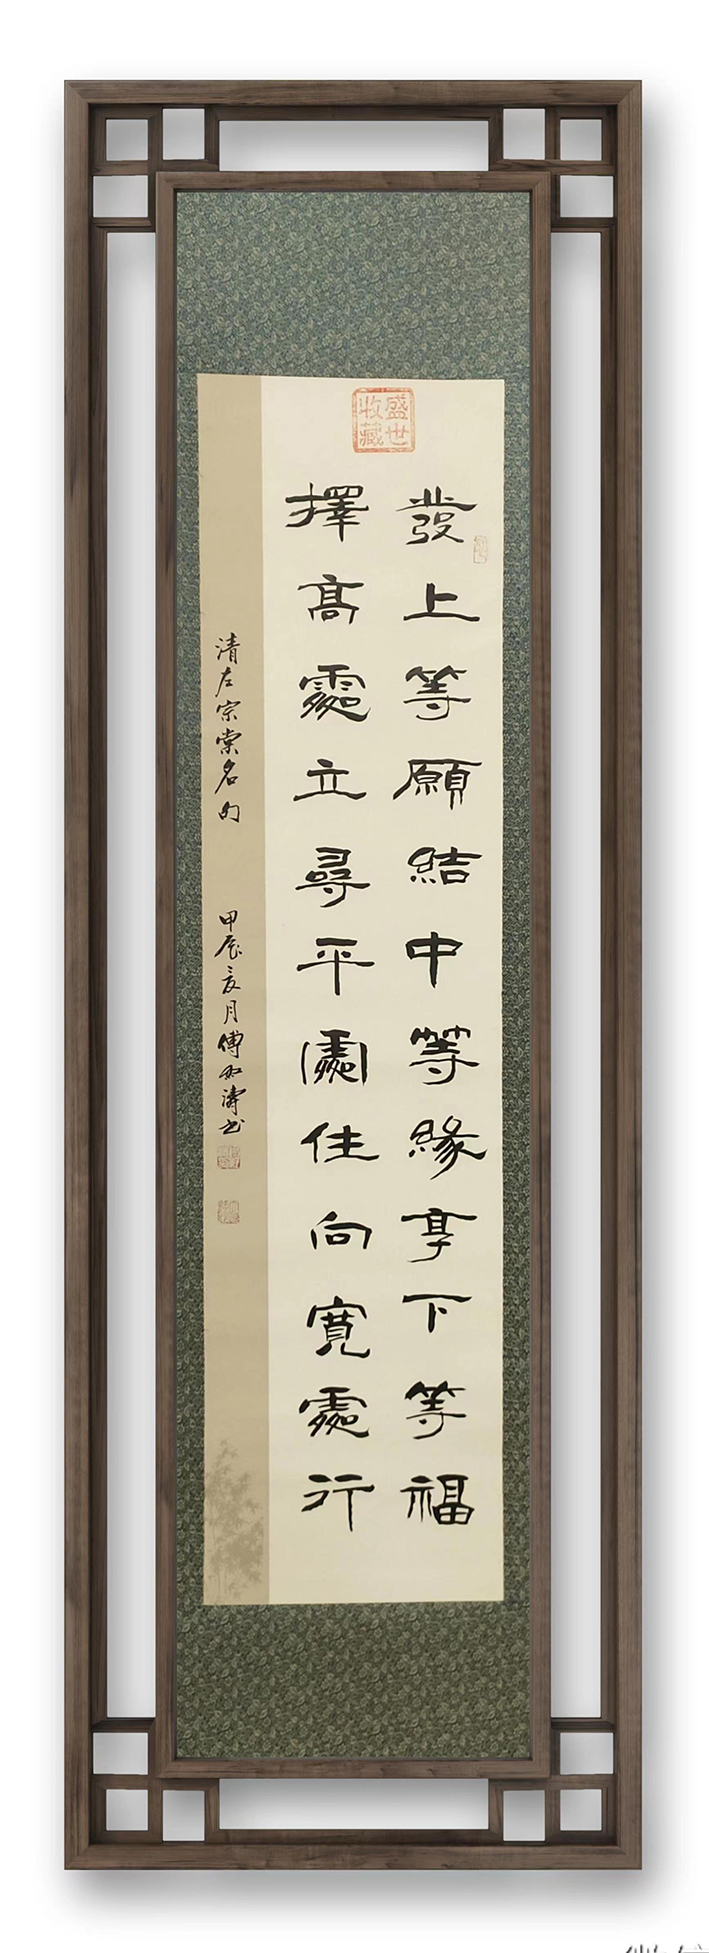 盛世收藏
發上等願結中等緣享下等福
擇高處立尋平處住向寬處行
清左宗棠名句 甲辰亥月傅如濤书